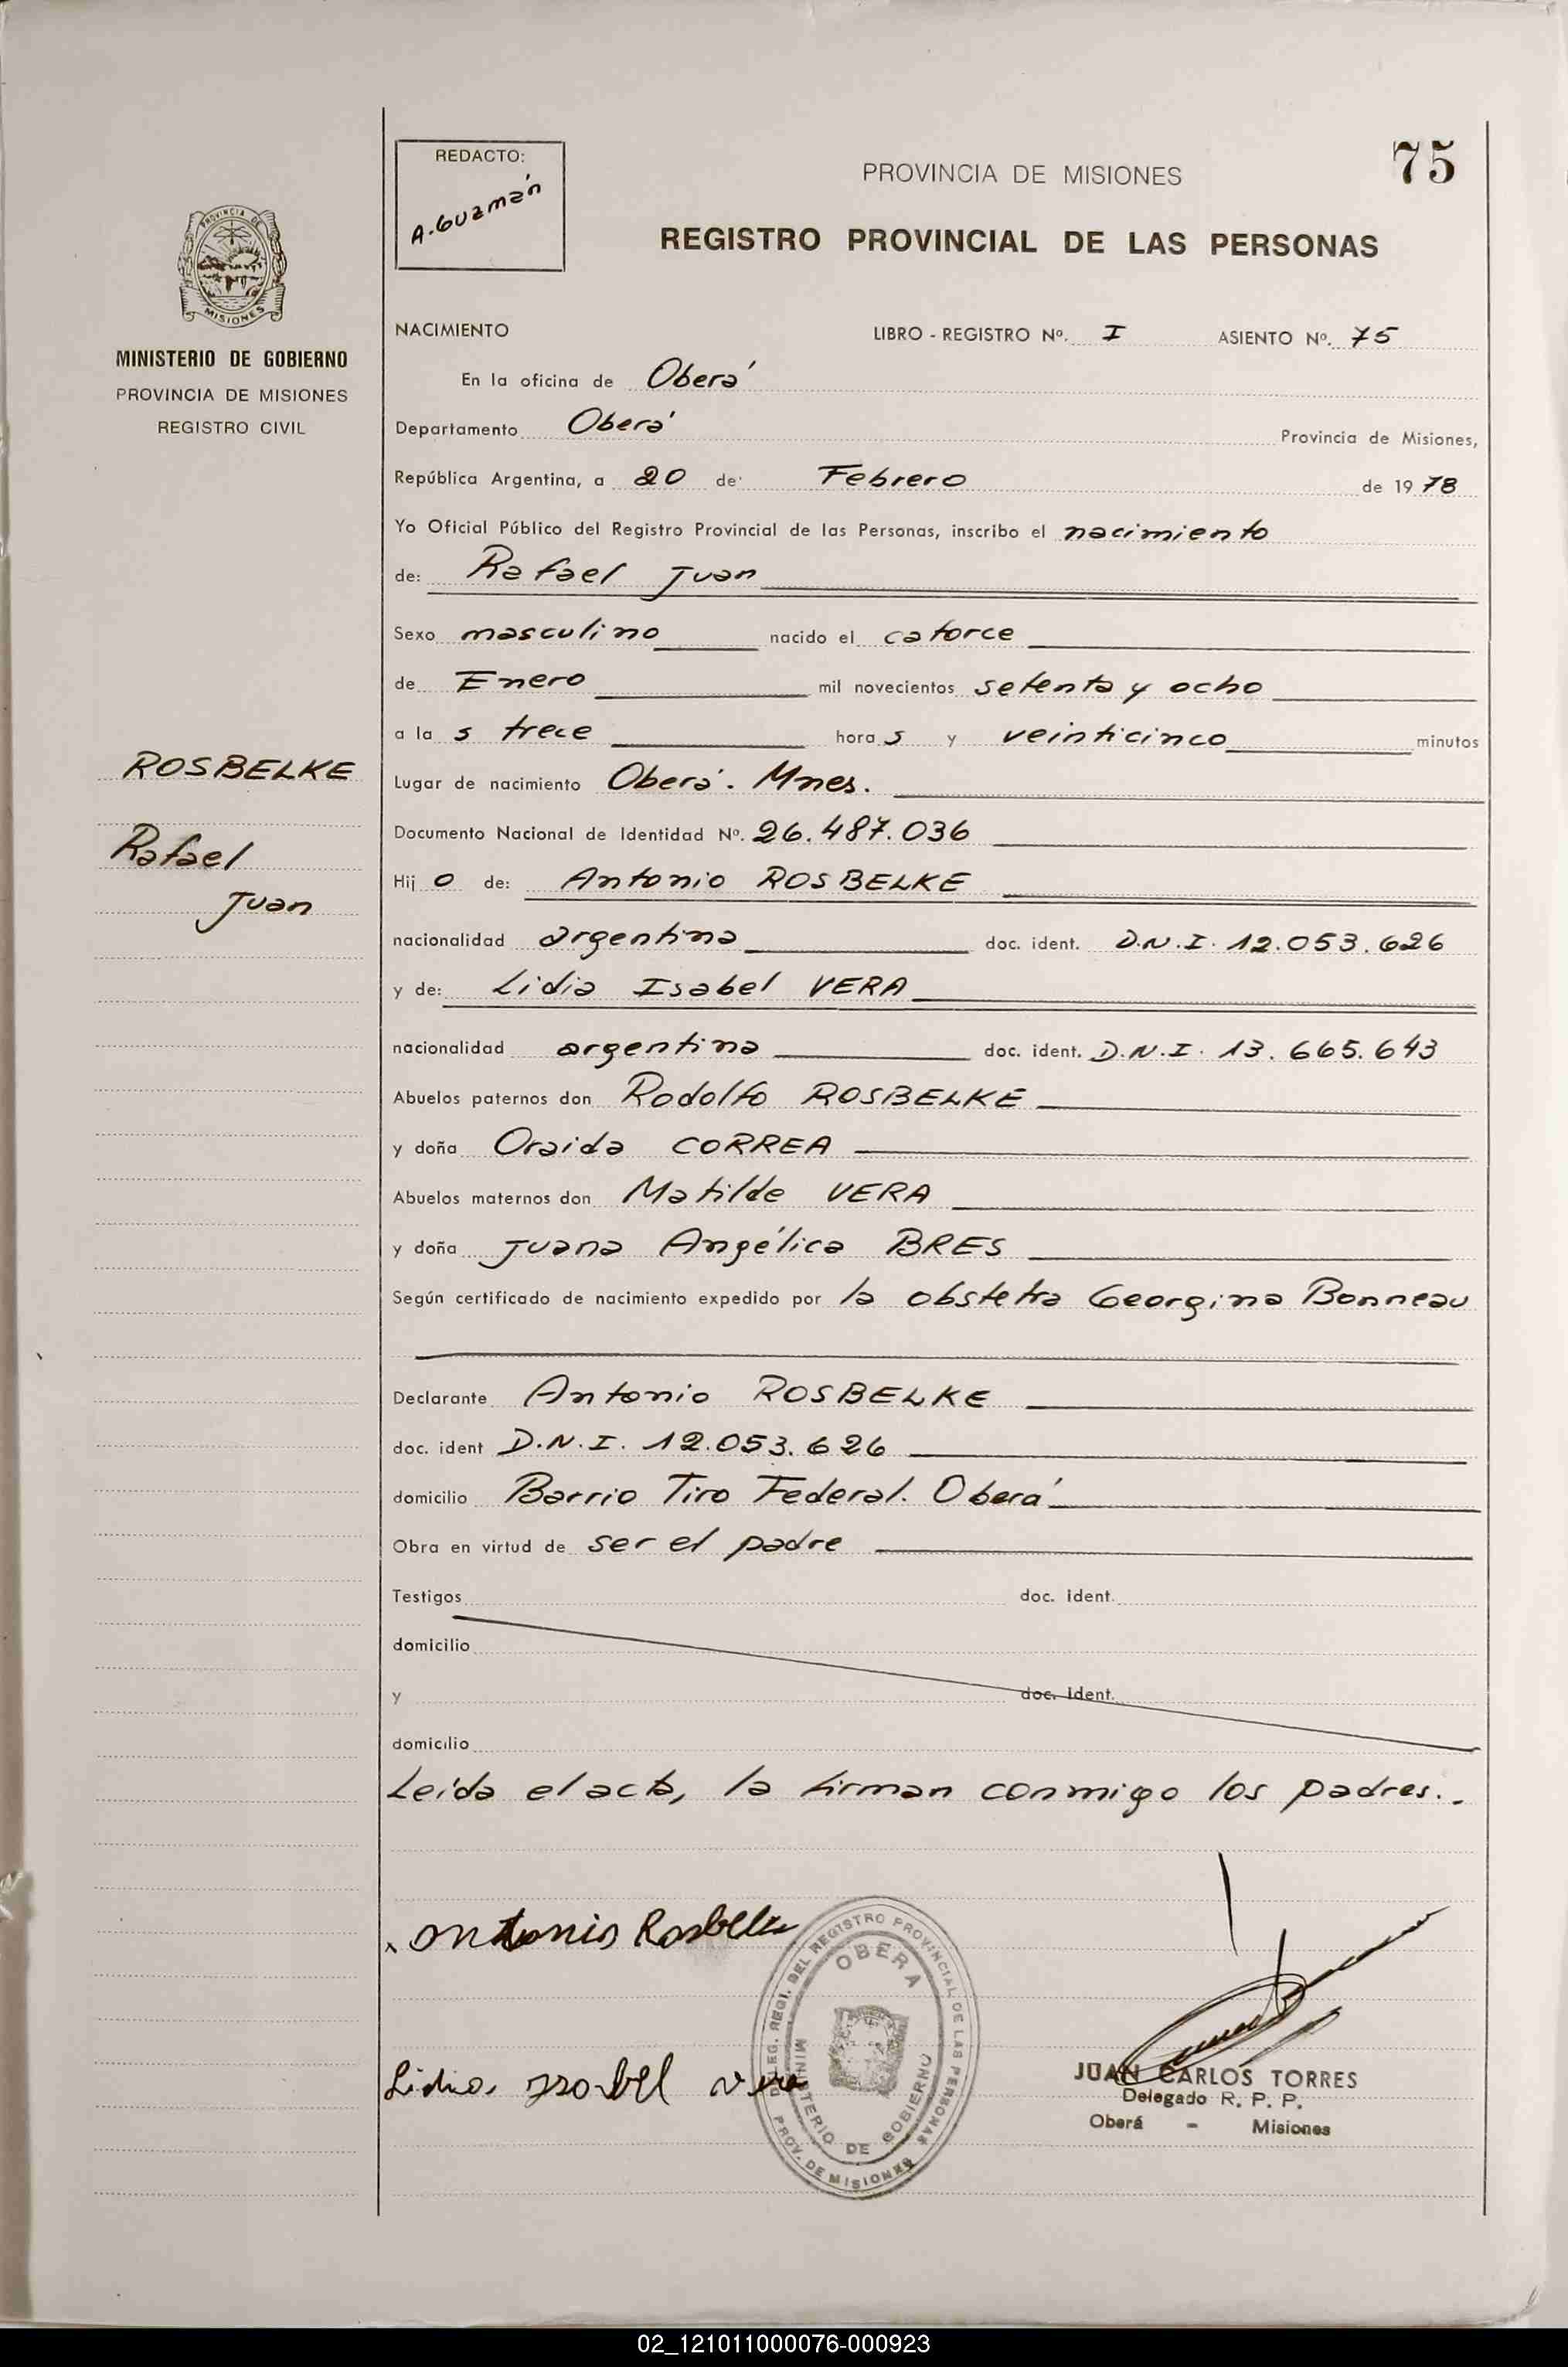 REDACTO:
A. Guzmán
PROVINCIA DE MISIONES
75
REGISTRO PROVINCIAL DE LAS PERSONAS
PROVINCIA DE
MISIONES
MINISTERIO DE GOBIERNO
PROVINCIA DE MISIONES
REGISTRO CIVIL
NACIMIENTO LIBRO - REGISTRO Nº. I ASIENTO Nº. 75
En la oficina de Oberá
Departamento Oberá Provincia de Misiones,
República Argentina, a 20 de Febrero de 1978
Yo Oficial Público del Registro Provincial de las Personas, inscribo el nacimiento
de: Rafael Juan
Sexo masculino nacido el catorce
de Enero mil novecientos setenta y ocho
a la s trece hora s y veinticinco minutos
ROSBELKE
Rafael
Juan
Lugar de nacimiento Oberá. Mnes.
Documento Nacional de Identidad Nº. 26.487.036
Hij o de: Antonio ROSBELKE
nacionalidad argentina doc. ident. D.N.I. 12.053.626
y de: Lidia Isabel VERA
nacionalidad argentina doc. ident. D.N.I. 13.665.643
Abuelos paternos don Rodolfo ROSBELKE
y doña Oraida CORREA
Abuelos maternos don Matilde VERA
y doña Juana Angélica BRES
Según certificado de nacimiento expedido por la obstetra Georgina Bonneau
Declarante Antonio ROSBELKE
doc. ident D.N.I. 12.053.626
domicilio Barrio Tiro Federal. Oberá
Obra en virtud de ser el padre
Testigos doc. ident.
domicilio
y doc. ident.
domicilio
Leída el acta, la firman conmigo los padres..
Antonio Rosbelke
Lidia Isabel Vera
DELEG. REGI. DEL REGISTRO PROVINCIAL DE LAS PERSONAS
OBERA
MINISTERIO DE GOBIERNO
PROV. DE MISIONES
JUAN CARLOS TORRES
Delegado R. P. P.
Oberá - Misiones
02_121011000076-000923